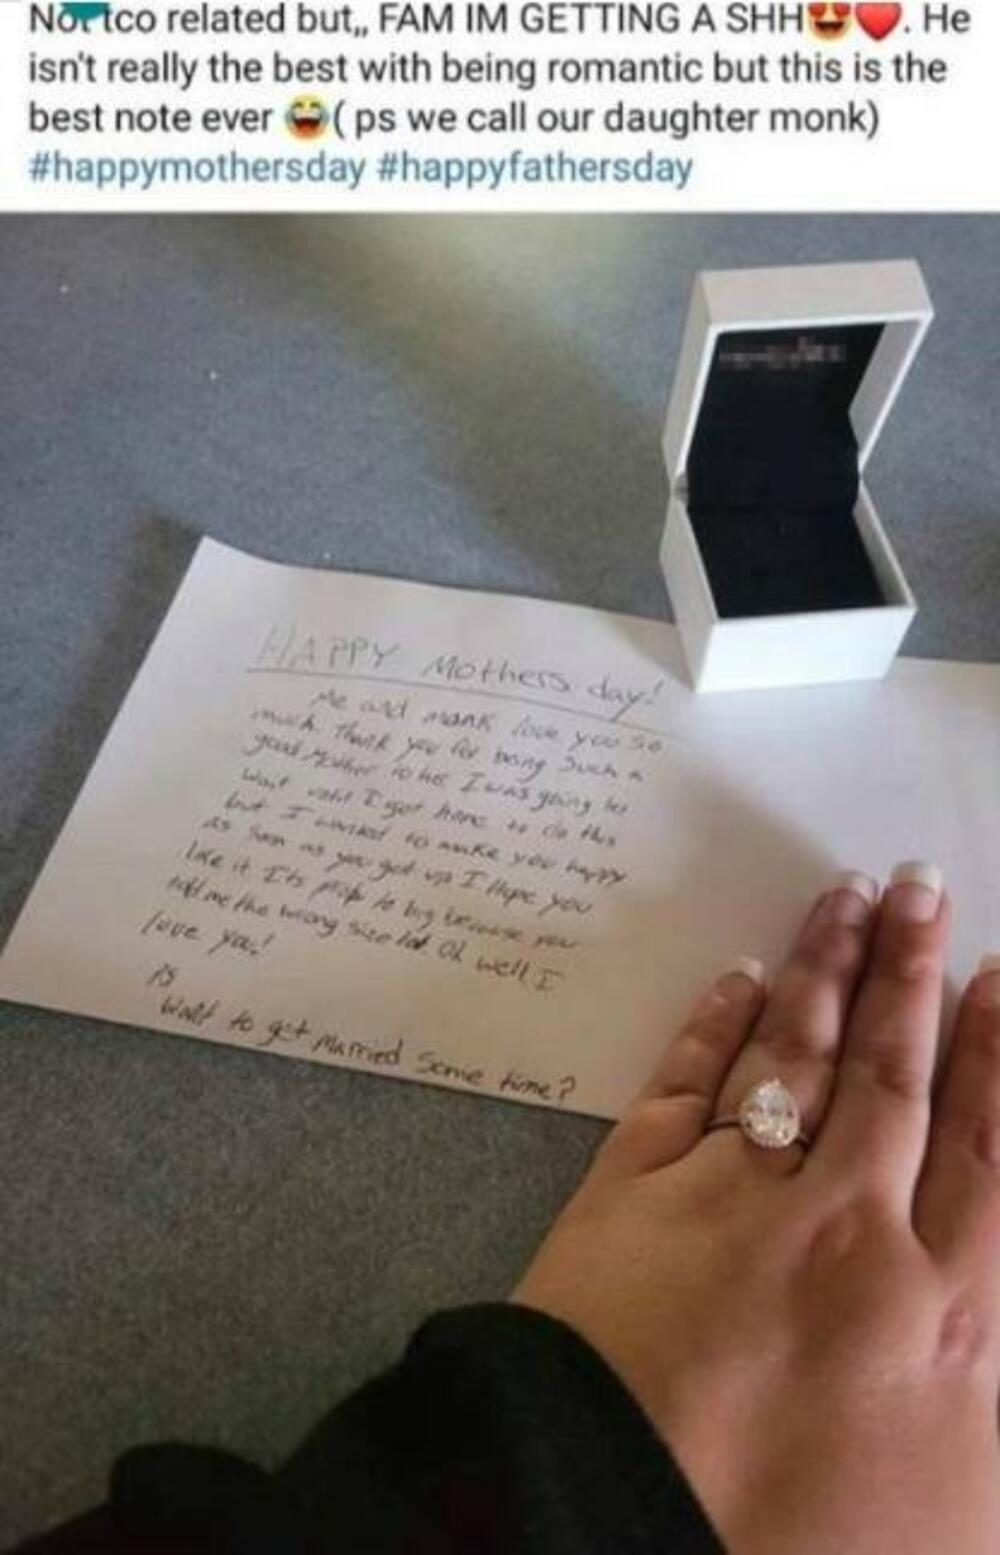 Not tco related but,, FAM IM GETTING A SHH😍❤️. He
isn't really the best with being romantic but this is the
best note ever 😂( ps we call our daughter monk)
#happymothersday #happyfathersday
HAPPY Mothers day!
Me and monk love you so
much. Thank you for being Such a
good Mother to her I was going to
wait until I got home to do this
but I wanted to make you happy
as soon as you got up I Hope you
like it Its prob to big because you
told me the wrong size lol. Oh well I
love you!
PS
Want to get Married Some time?